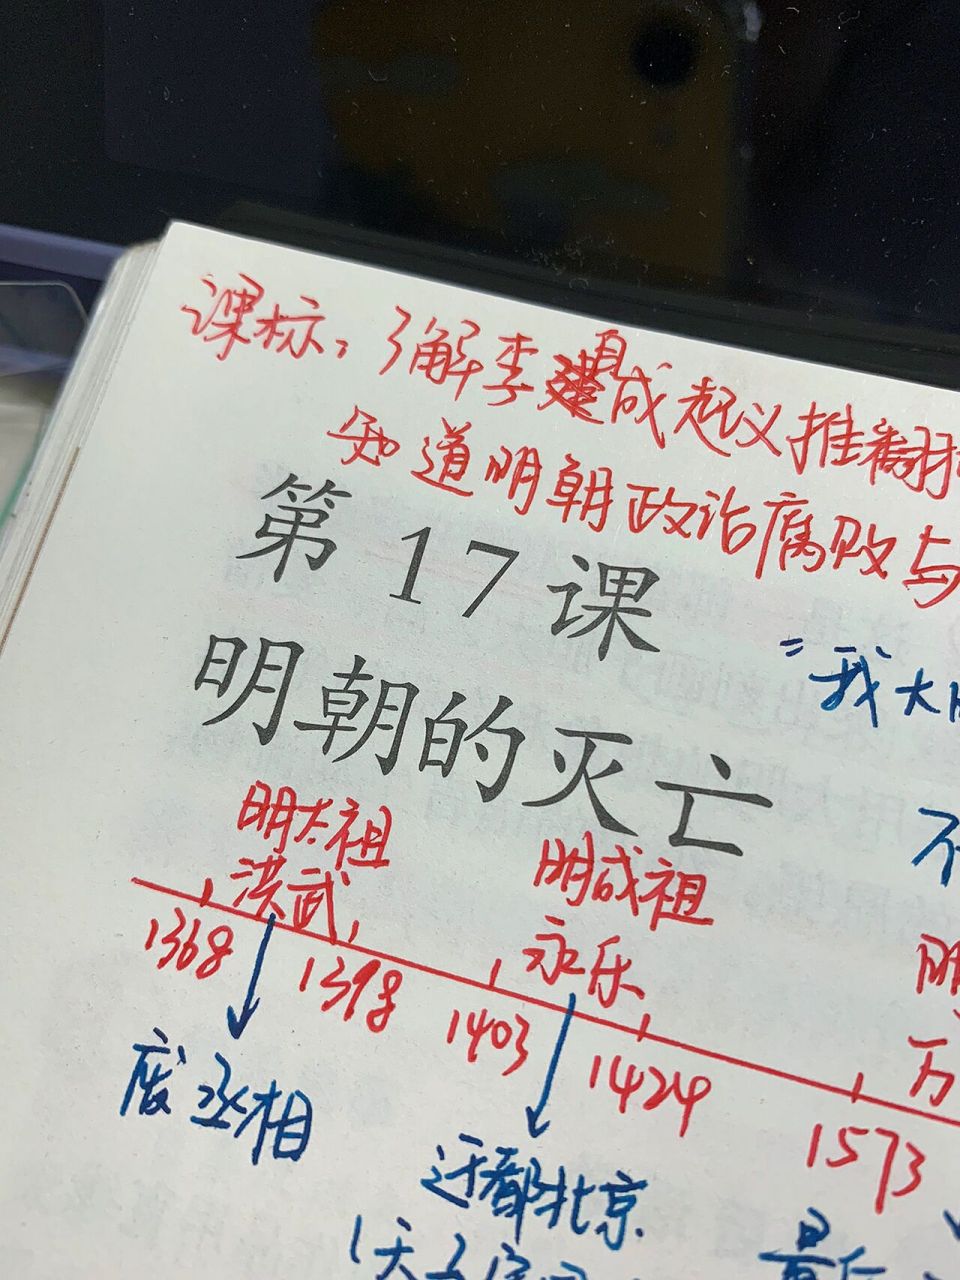 课标：了解李自成起义推翻
知道明朝政治腐败与
第17课
"我大
明朝的灭亡
不
明太祖
洪武
明成祖
永乐
明
万
1368
1398
1403
1424
1573
废丞相
迁都北京
1天
最后